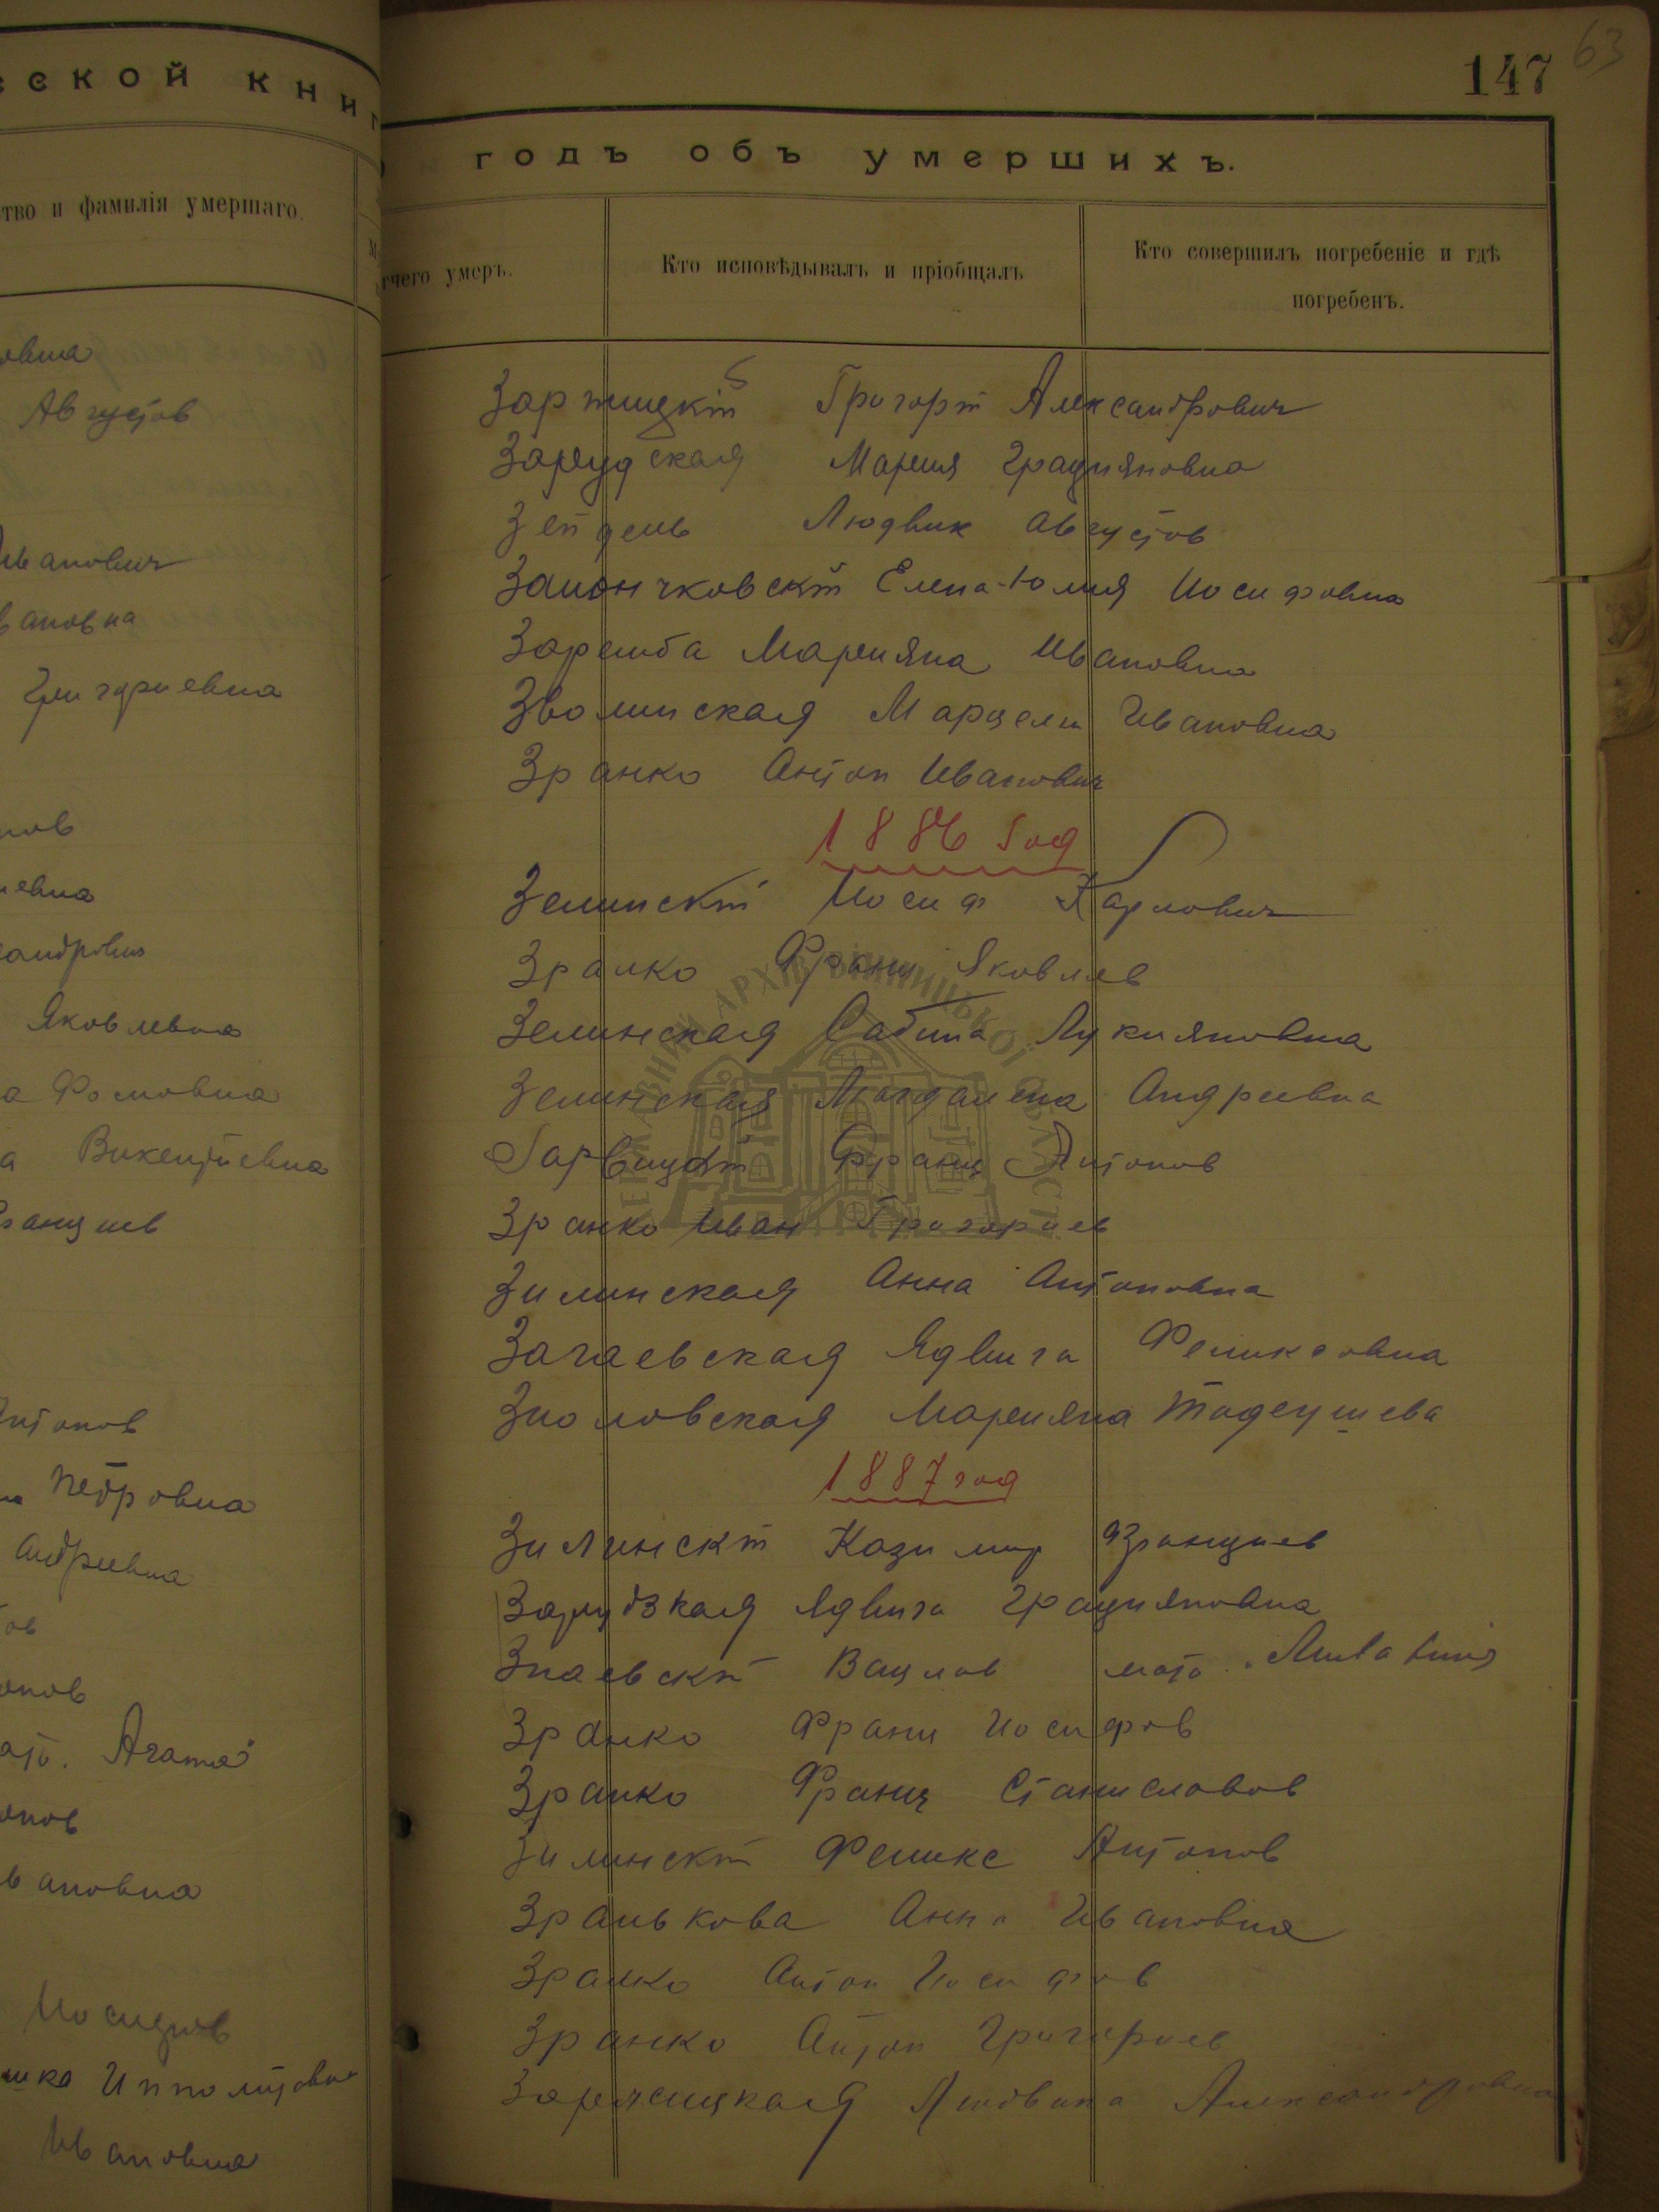 ской книг
тво и фамилія умершаго.
овна
Августов
Ивановичъ
вановна
Григориевна
нов
иевна
сандрович
Яковлевна
а Фомовна
а Викентиевна
Францишев
Антонов
Петровна
Андреевна
ов
онов
Агата
онов
вановна
Иосифов
шка Ипполитовна
Ивановна
147
63
годъ объ умершихъ.
чего умеръ.
Кто исповѣдывалъ и пріобщалъ
Кто совершилъ погребеніе и гдѣ
погребенъ.
Григорій Александрович
Зарудская Мария Грацияновна
Зейдель Людвик Августов
Заиончковскій Елена-Юлия Иосифовна
Заремба Марияна Ивановна
Зволинская Марцели Ивановна
Зранко Антон Иванович
1886 Год
Зелинскій Иосиф Карлович
Зранко Франц Яковлев
Зелинская Сабина Лукияновна
Зелинская Магдалена Андреевна
Франц Антонов
Зранко Иван Григориев
Зилинская Анна Антоновна
Загаевская Ядвига Феликсовна
Зиоловская Марияна Тадеушева
1887 год
Зилинскій Казимир Францшев
Зарудзкая Ядвига Грацияновна
Вацлав мать
Зранко Франц Иосифов
Зранко Франц Станиславов
Зилинскій Феликс Антонов
Зранькова Анна Ивановна
Зранко Антон Иосифов
Зранко Антон Григориев
Людвика Александровна
ДЕРЖАВНИЙ АРХІВ ВІННИЦЬКОЇ ОБЛАСТІ